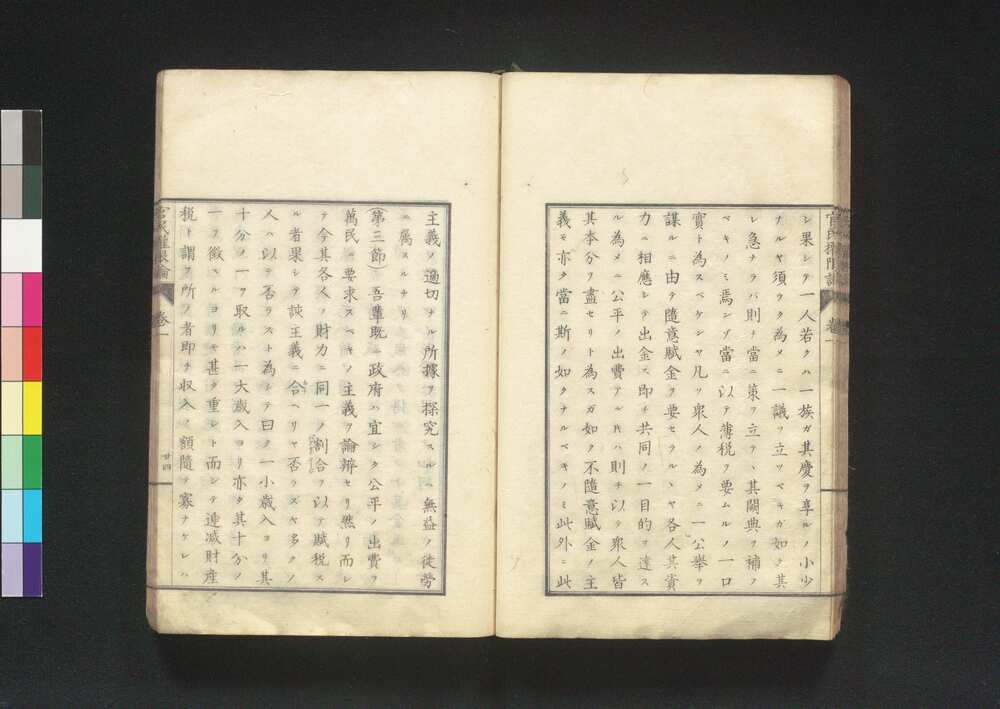 シ果シテ一人若クハ一族ガ其慶ヲ享ルノ小少
ナルヤ須ラク為メニ一議ヲ立ツベキガ如シ其
レ急ナラバ則チ當ニ策ヲ立テヽ其闕典ヲ補フ
ベキノミ焉ンゾ當ニ以テ薄税ヲ要ムルノ一口
實ト為スベケンヤ凡ソ衆人ノ為メニ一公舉ヲ
謀ルニ由テ隨意賦金ヲ要セラルヽヤ各人其資
力ニ相應シテ出金ス即チ共同ノ一目的ヲ達ス
ル為メニ公平ノ出費アル片ハ則チ以テ衆人皆
其本分ヲ盡セリト為スガ如ク不隨意賦金ノ主
義モ亦タ當ニ斯ノ如クナルベキノミ此外ニ此
官民權限論 卷一
主義ノ適切ナル所據ヲ探究スルハ無益ノ徒勞
ニ屬スルナリ
(第三節)吾輩既ニ政府ハ宜シク公平ノ出費ヲ
萬民ニ要求スベキノ主義ヲ論辨セリ然リ而シ
テ今其各人ノ財力ニ同一ノ割合ヲ以テ賦税ス
ル者果シテ該主義ニ合ヘリヤ否ラズヤ多クノ
人ハ以テ否ラズト為シテ曰ク一小歳入ヨリ其
十分ノ一ヲ取ルハ一大歳入ヨリ亦タ其十分ノ
一ヲ徴スルヨリモ甚タ重シト而シテ逓減財産
税ト謂フ所ノ者即チ收入ノ額隨テ寡ナケレハ
官民權限論 卷一
廿四